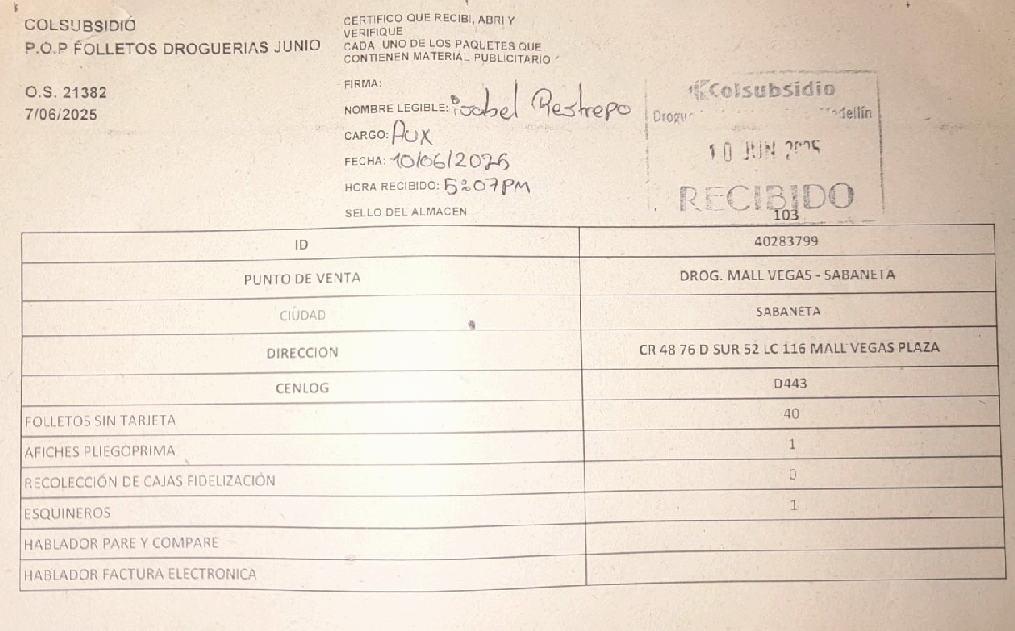 COLSUBSIDIO
P.O.P FOLLETOS DROGUERIAS JUNIO
O.S. 21382
7/06/2025
CERTIFICO QUE RECIBI, ABRI Y
VERIFIQUE
CADA UNO DE LOS PAQUETES QUE
CONTIENEN MATERIAL PUBLICITARIO
FIRMA:
NOMBRE LEGIBLE: Isabel Restrepo
CARGO: Aux
FECHA: 10/06/2025
HORA RECIBIDO: 5:07PM
SELLO DEL ALMACEN
Colsubsidio
10 JUN 2025
RECIBIDO
103
ID 40283799
PUNTO DE VENTA DROG. MALL VEGAS - SABANETA
CIUDAD SABANETA
DIRECCION CR 48 76 D SUR 52 LC 116 MALL VEGAS PLAZA
CENLOG D443
FOLLETOS SIN TARJETA 40
AFICHES PLIEGOPRIMA 1
RECOLECCIÓN DE CAJAS FIDELIZACIÓN 0
ESQUINEROS 1
HABLADOR PARE Y COMPARE
HABLADOR FACTURA ELECTRONICA